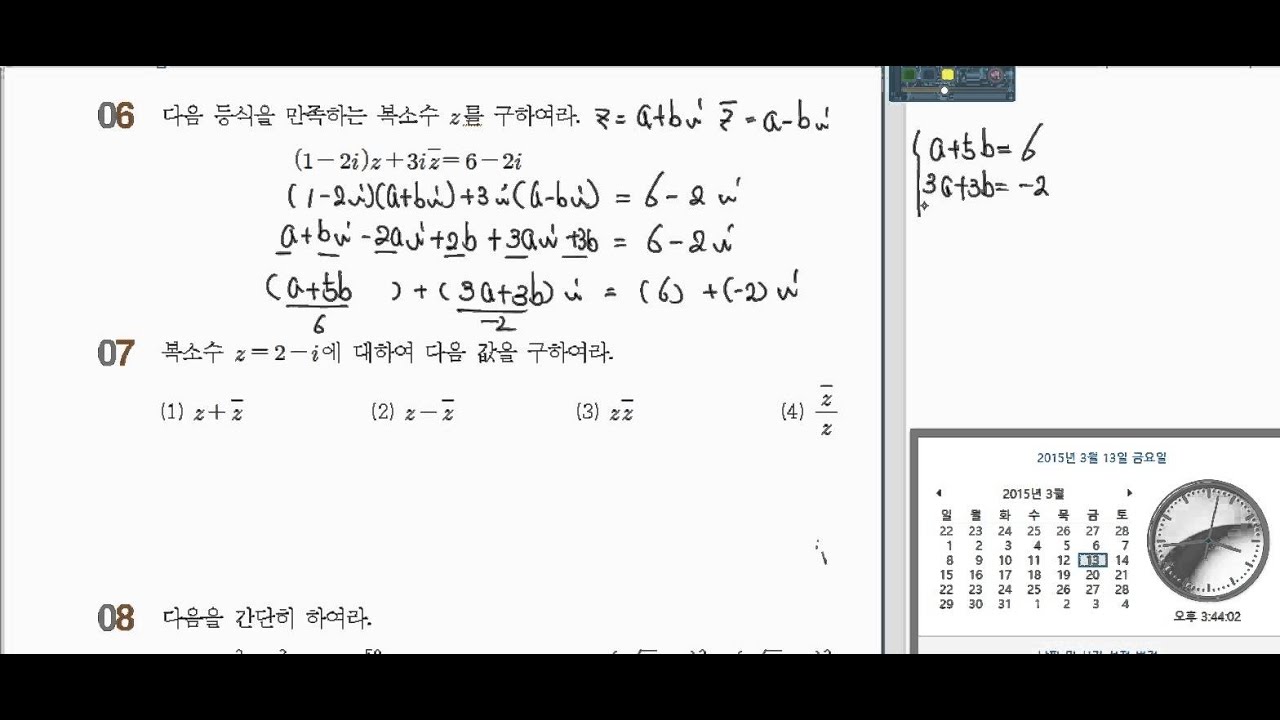 06 다음 등식을 만족하는 복소수 z를 구하여라. z = a+bi z̅ = a-bi
(1-2i)z+3iz̅=6-2i
(1-2i)(a+bi)+3i(a-bi) = 6-2i
a+bi-2ai+2b+3ai+3b = 6-2i
(a+5b ) + (3a+3b)i = (6) +(-2)i
6 -2
07 복소수 z=2-i에 대하여 다음 값을 구하여라.
(1) z+z̅ (2) z-z̅ (3) zz̅ (4) z̅/z
08 다음을 간단히 하여라.
a+5b=6
3a+3b=-2
2015년 3월 13일 금요일
2015년 3월
일 월 화 수 목 금 토
22 23 24 25 26 27 28
1 2 3 4 5 6 7
8 9 10 11 12 13 14
15 16 17 18 19 20 21
22 23 24 25 26 27 28
29 30 31 1 2 3 4
오후 3:44:02